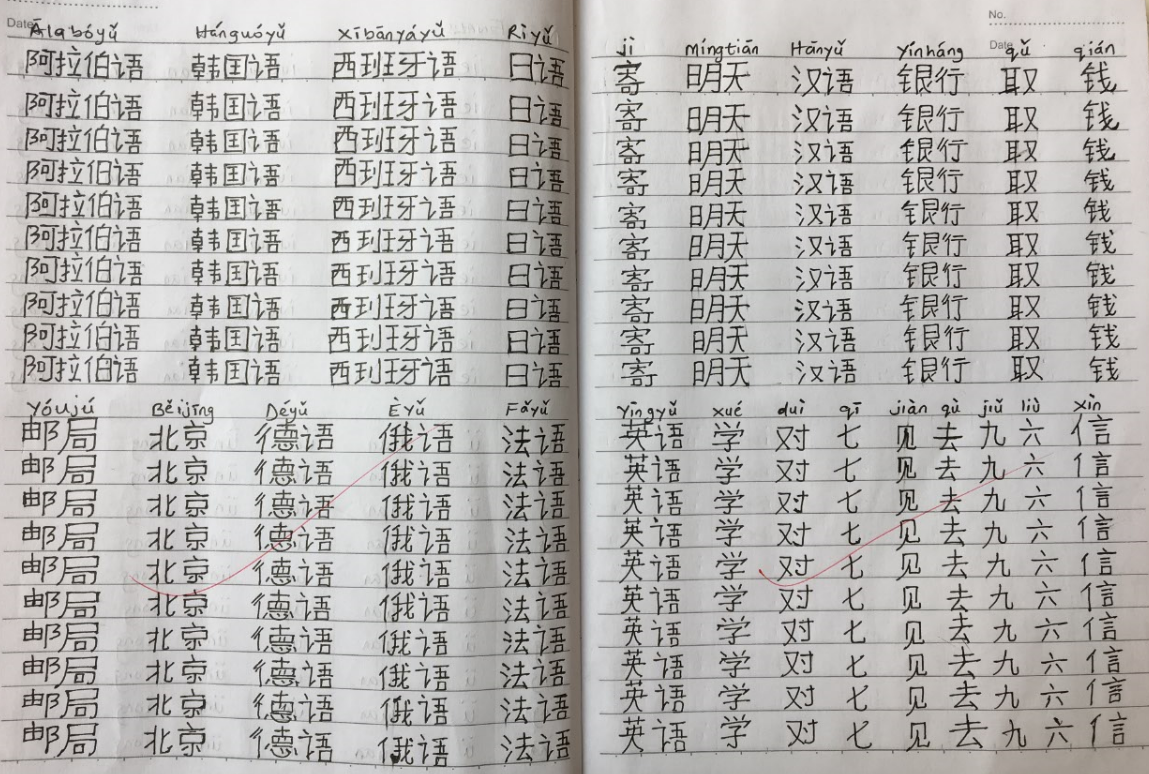 Date
Ālābóyǔ Hánguóyǔ Xībānyáyǔ Rìyǔ
阿拉伯语 韩国语 西班牙语 日语
阿拉伯语 韩国语 西班牙语 日语
阿拉伯语 韩国语 西班牙语 日语
阿拉伯语 韩国语 西班牙语 日语
阿拉伯语 韩国语 西班牙语 日语
阿拉伯语 韩国语 西班牙语 日语
阿拉伯语 韩国语 西班牙语 日语
阿拉伯语 韩国语 西班牙语 日语
阿拉伯语 韩国语 西班牙语 日语
阿拉伯语 韩国语 西班牙语 日语
Yóujú Běijīng Déyǔ Èyǔ Fǎyǔ
邮局 北京 德语 俄语 法语
邮局 北京 德语 俄语 法语
邮局 北京 德语 俄语 法语
邮局 北京 德语 俄语 法语
邮局 北京 德语 俄语 法语
邮局 北京 德语 俄语 法语
邮局 北京 德语 俄语 法语
邮局 北京 德语 俄语 法语
邮局 北京 德语 俄语 法语
邮局 北京 德语 俄语 法语
No.
Date
jì míngtiān Hànyǔ yínháng qǔ qián
寄 明天 汉语 银行 取 钱
寄 明天 汉语 银行 取 钱
寄 明天 汉语 银行 取 钱
寄 明天 汉语 银行 取 钱
寄 明天 汉语 银行 取 钱
寄 明天 汉语 银行 取 钱
寄 明天 汉语 银行 取 钱
寄 明天 汉语 银行 取 钱
寄 明天 汉语 银行 取 钱
寄 明天 汉语 银行 取 钱
Yīngyǔ xué duì qī jiàn qù jiǔ liù xìn
英语 学 对 七 见 去 九 六 信
英语 学 对 七 见 去 九 六 信
英语 学 对 七 见 去 九 六 信
英语 学 对 七 见 去 九 六 信
英语 学 对 七 见 去 九 六 信
英语 学 对 七 见 去 九 六 信
英语 学 对 七 见 去 九 六 信
英语 学 对 七 见 去 九 六 信
英语 学 对 七 见 去 九 六 信
英语 学 对 七 见 去 九 六 信